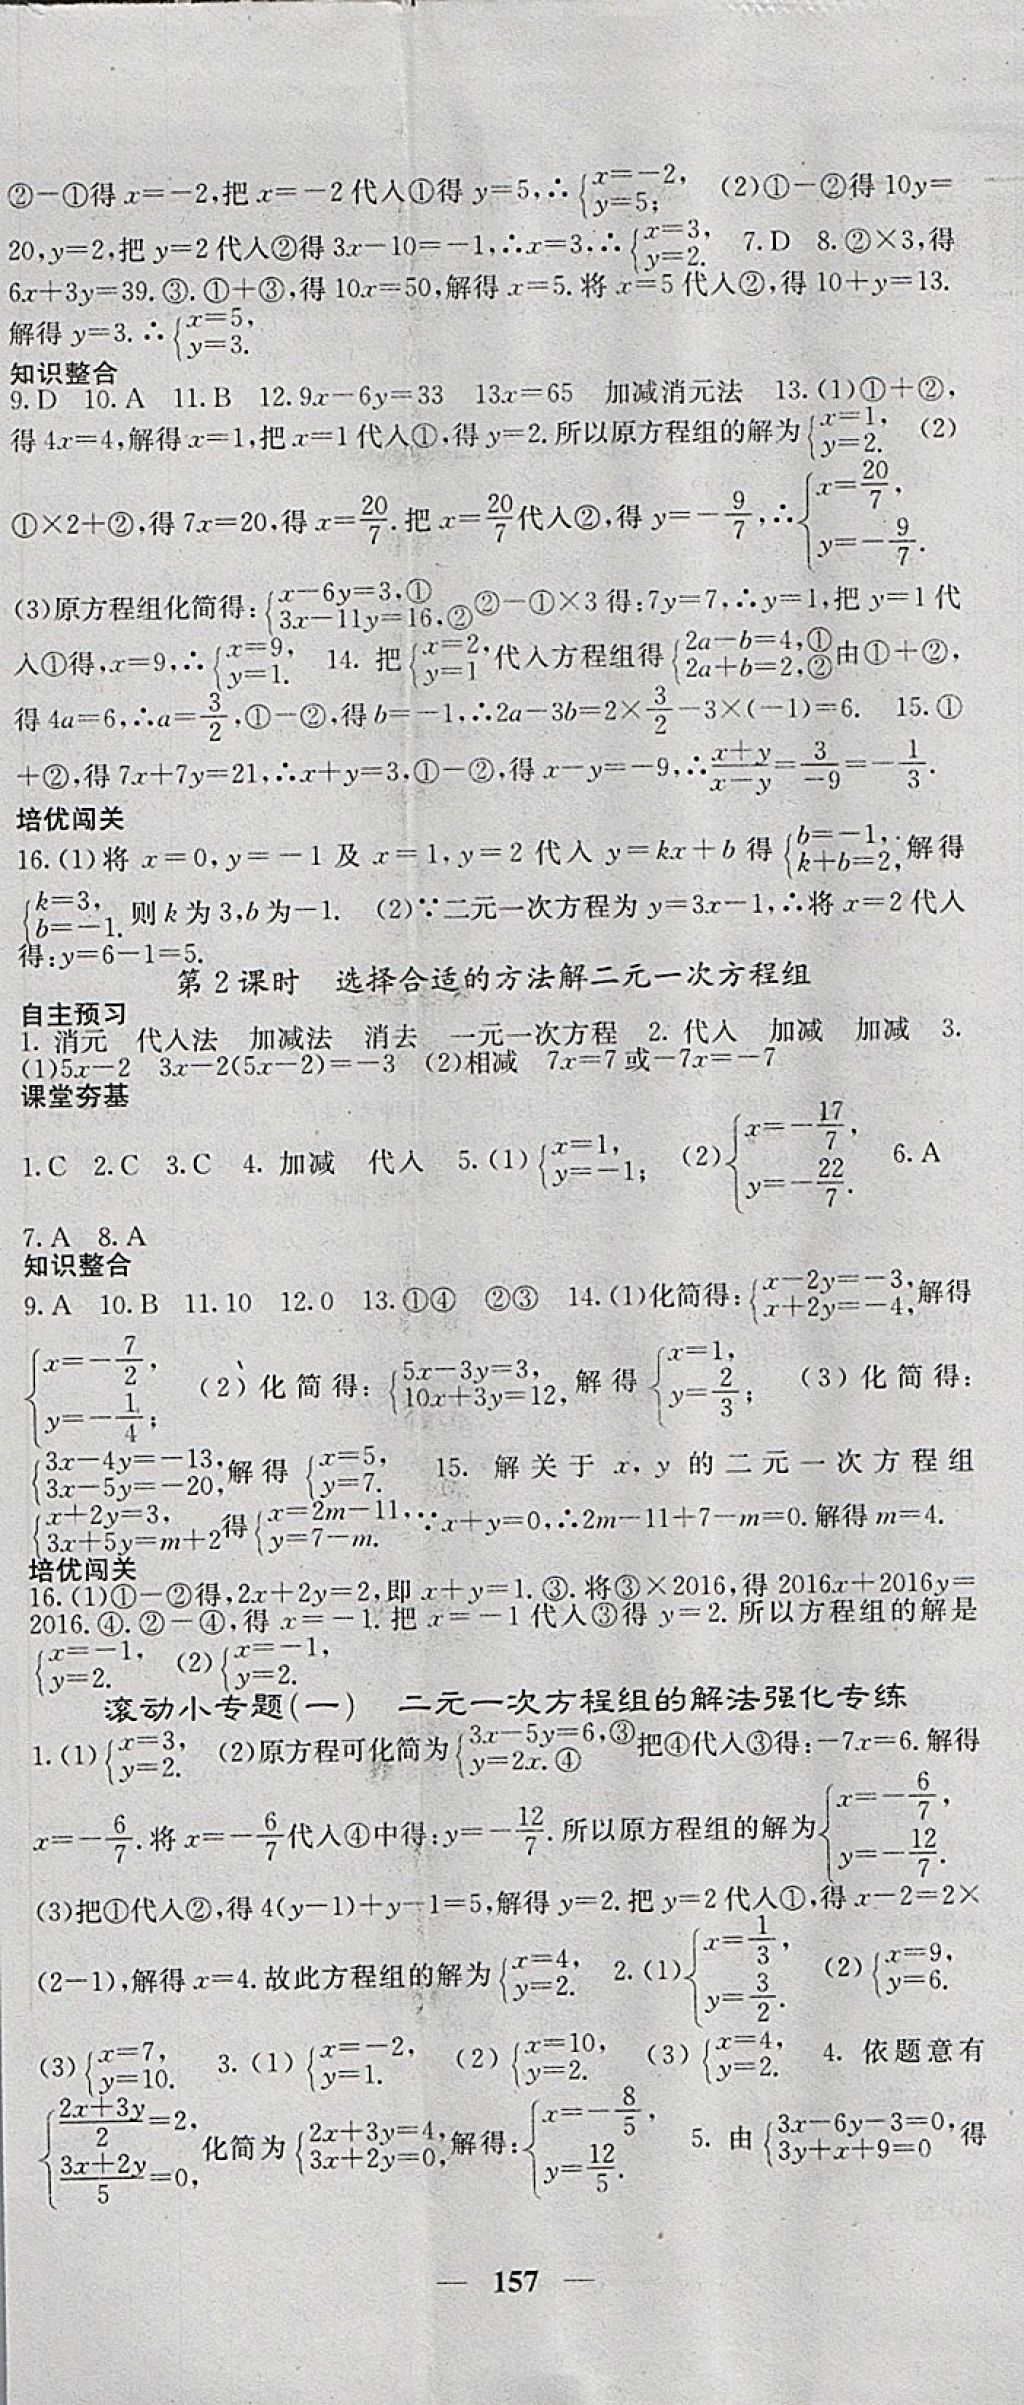 ②－①得 x=－2,把 x=－2代入①得 y=5,∴{x=－2, y=5; (2)①－②得 10y=
20,y=2,把 y=2代入②得 3x－10=－1,∴x=3.∴{x=3, y=2. 7.D 8.②×3,得
6x+3y=39.③.①+③,得 10x=50,解得 x=5.将 x=5代入②,得 10+y=13.
解得 y=3.∴{x=5, y=3.
知识整合
9.D 10.A 11.B 12.9x－6y=33 13x=65 加减消元法 13.(1)①+②,
得 4x=4,解得 x=1,把 x=1代入①,得 y=2.所以原方程组的解为{x=1, y=2. (2)
①×2+②,得 7x=20,得 x=20/7.把 x=20/7代入②,得 y=－9/7,∴{x=20/7, y=－9/7.
(3)原方程组化简得:{x－6y=3,① 3x－11y=16,② ②－①×3得:7y=7,∴y=1,把 y=1代
入①得,x=9,∴{x=9, y=1. 14. 把{x=2, y=1代入方程组得{2a－b=4,① 2a+b=2,②由①+②,
得 4a=6,∴a=3/2,①－②,得 b=－1,∴2a－3b=2×3/2－3×(－1)=6. 15.①
+②,得 7x+7y=21,∴x+y=3,①－②,得 x－y=－9,∴(x+y)/(x－y)=3/－9=－1/3.
培优闯关
16.(1)将 x=0,y=－1及 x=1,y=2代入 y=kx+b得{b=－1, k+b=2,解得
{k=3, b=－1.则 k为 3,b为－1. (2)∵二元一次方程为 y=3x－1,∴将 x=2代入
得:y=6－1=5.
第2课时 选择合适的方法解二元一次方程组
自主预习
1. 消元 代入法 加减法 消去 一元一次方程 2. 代入 加减 加减 3.
(1)5x－2 3x－2(5x－2)=－3 (2)相减 7x=7或－7x=－7
课堂夯基
1.C 2.C 3.C 4. 加减 代入 5.(1){x=1, y=－1; (2){x=－17/7, y=－22/7. 6.A
7.A 8.A
知识整合
9.A 10.B 11.10 12.0 13.①④ ②③ 14.(1)化简得:{x－2y=－3, x+2y=－4,解得
{x=－7/2, y=－1/4; (2)化简得:{5x－3y=3, 10x+3y=12,解得{x=1, y=2/3; (3)化简得:
{3x－4y=－13, 3x－5y=－20,解得{x=5, y=7. 15. 解关于 x,y 的二元一次方程组
{x+2y=3, 3x+5y=m+2得{x=2m－11, y=7－m.∵x+y=0,∴2m－11+7－m=0.解得 m=4.
培优闯关
16.(1)①－②得,2x+2y=2,即 x+y=1.③.将③×2016,得 2016x+2016y=
2016.④.②－④,得 x=－1.把 x=－1代入③得 y=2.所以方程组的解是
{x=－1, y=2. (2){x=－1, y=2.
滚动小专题(一) 二元一次方程组的解法强化专练
1.(1){x=3, y=2. (2)原方程可化简为{3x－5y=6,③ y=2x.④把④代入③得:－7x=6.解得
x=－6/7.将 x=－6/7代入④中得:y=－12/7.所以原方程组的解为{x=－6/7, y=－12/7.
(3)把①代入②,得 4(y－1)+y－1=5,解得 y=2.把 y=2代入①,得 x－2=2×
(2－1),解得 x=4.故此方程组的解为{x=4, y=2. 2.(1){x=1/3, y=3/2. (2){x=9, y=6.
(3){x=7, y=10. 3.(1){x=－2, y=1. (2){x=10, y=2. (3){x=4, y=2. 4. 依题意有
{(2x+3y)/2=2, (3x+2y)/5=0,化简为{2x+3y=4, 3x+2y=0,解得:{x=－8/5, y=12/5. 5. 由{3x－6y－3=0, 3y+x+9=0得
— 157 —